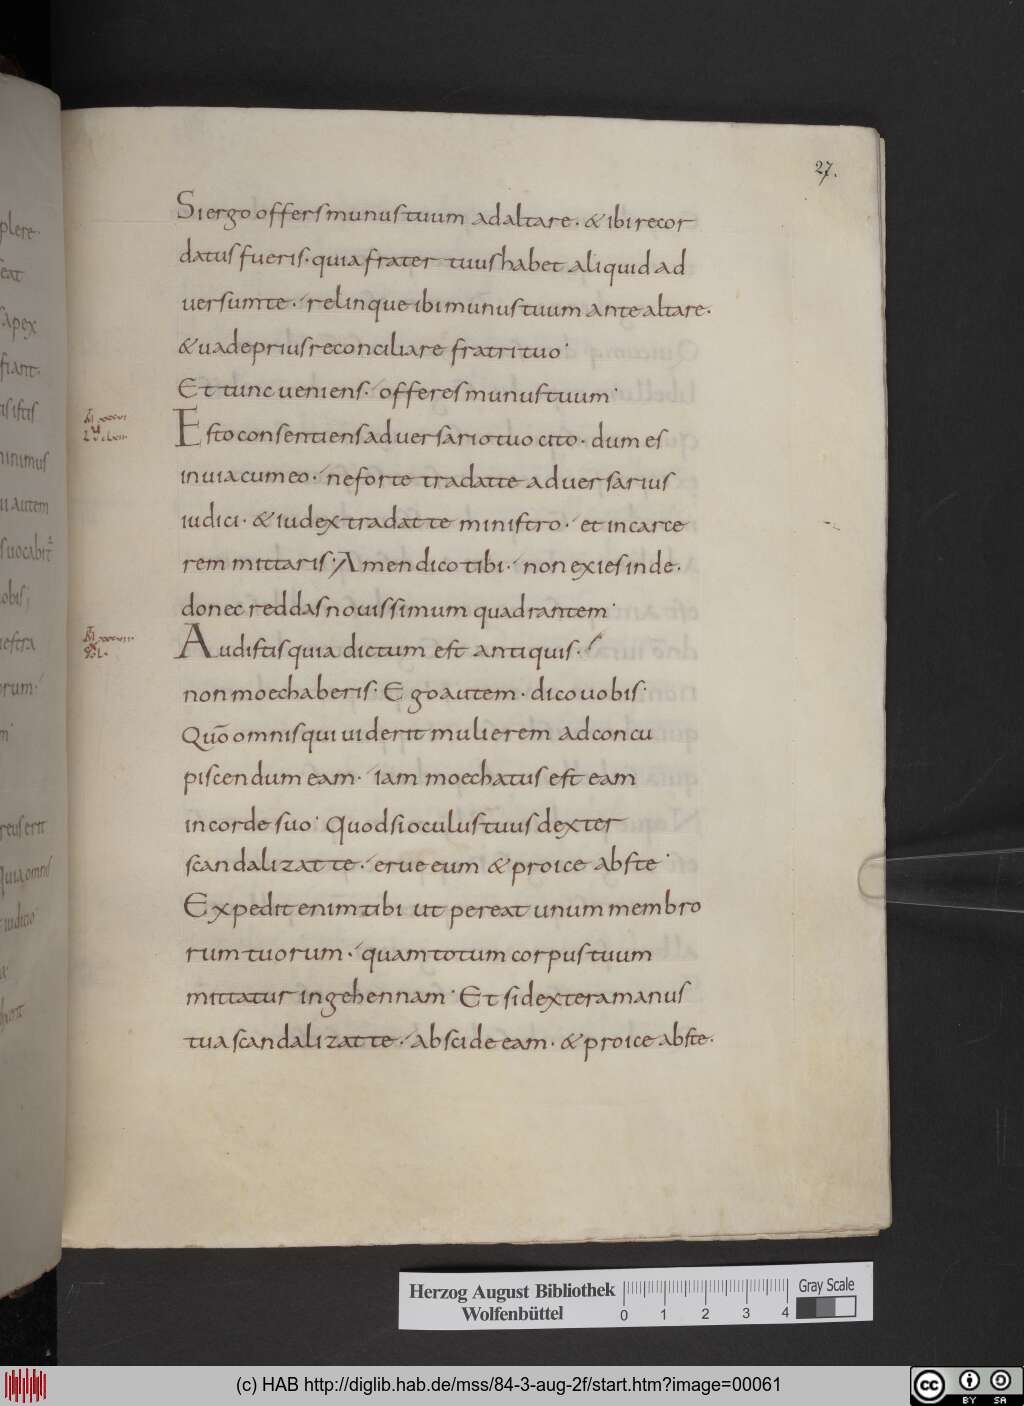 27.
Si ergo offers munus tuum ad altare. & ibi recor
datus fueris. quia frater tuus habet aliquid ad
uersum te. relinque ibi munus tuum ante altare.
& uade prius reconciliare fratri tuo.
Et tunc ueniens. offeres munus tuum.
Esto consentiens aduersario tuo cito. dum es
in uia cum eo. ne forte tradat te aduersarius
iudici. & iudex tradat te ministro. et in carce
rem mittaris. Amen dico tibi. non exies inde.
donec reddas nouissimum quadrantem.
Audistis quia dictum est antiquis.
non moechaberis. Ego autem. dico uobis.
Quō omnis qui uiderit mulierem ad concu
piscendum eam. iam moechatus est eam
in corde suo. Quod si oculus tuus dexter
scandalizat te. erue eum & proice abs te.
Expedit enim tibi ut pereat unum membro
rum tuorum. quam totum corpus tuum
mittatur in gehennam. Et si dextera manus
tua scandalizat te. abscide eam. & proice abs te.
plere.
eat
apex
fiant.
minimus
ui autem
s uocabit
obis;
uestra
orum.
reus erit
quia omnis
iudicio
Herzog August Bibliothek
Wolfenbüttel
0 1 2 3 4
Gray Scale
(c) HAB http://diglib.hab.de/mss/84-3-aug-2f/start.htm?image=00061
cc BY SA